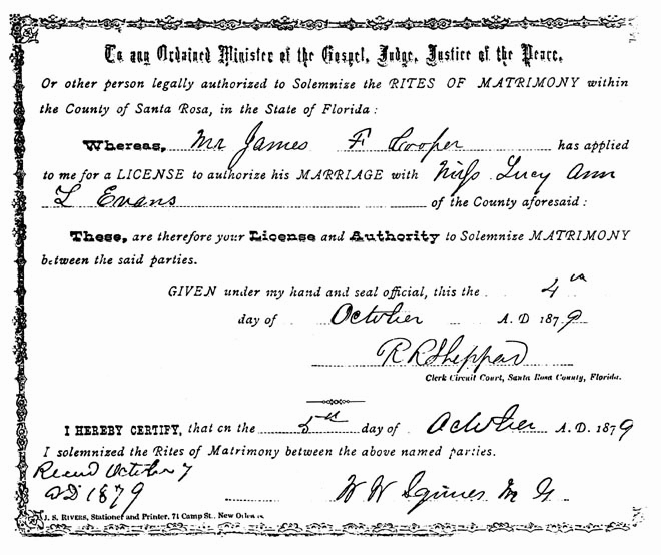 To any Ordained Minister of the Gospel, Judge, Justice of the Peace,
Or other person legally authorized to Solemnize the RITES OF MATRIMONY within
the County of Santa Rosa, in the State of Florida:
Whereas, Mr James F Cooper has applied
to me for a LICENSE to authorize his MARRIAGE with Miss Lucy Ann
L Evans of the County aforesaid:
These, are therefore your License and Authority to Solemnize MATRIMONY
between the said parties.
GIVEN under my hand and seal official, this the 4th
day of October A. D 1879
R R Sheppard
Clerk Circuit Court, Santa Rosa County, Florida.
I HEREBY CERTIFY, that on the 5th day of October A. D. 1879
I solemnized the Rites of Matrimony between the above named parties.
Recrd October 7
AD 1879
W W Squires M G.
J. S. RIVERS, Stationer and Printer, 74 Camp St., New Orleans